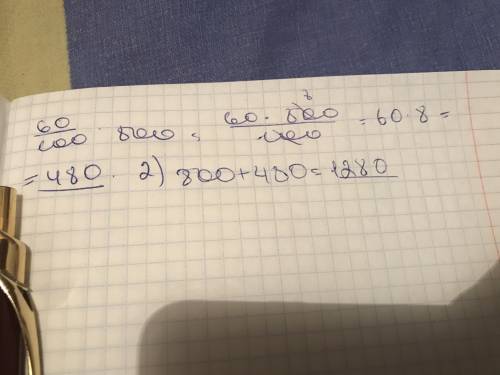 60/100 · 800 = 60 · 800/100 = 60 · 8 =
= 480. 2) 800+480=1280